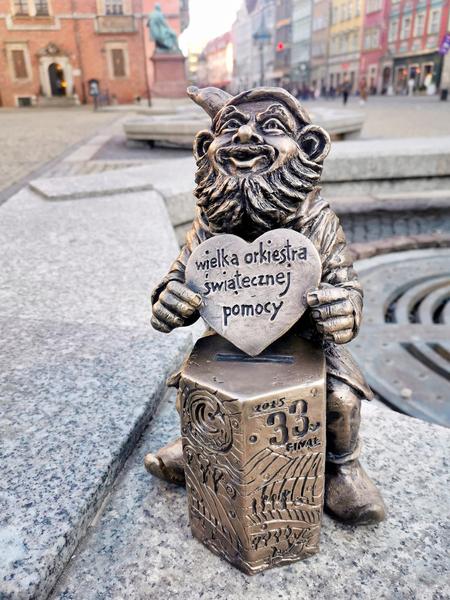 wielka orkiestra
świątecznej
pomocy
2025
33.
FINAŁ